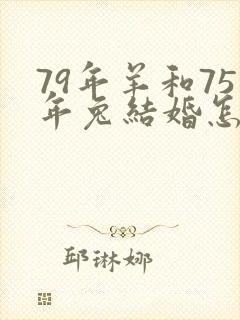 79年羊和75
年兔結婚怎
邱琳娜